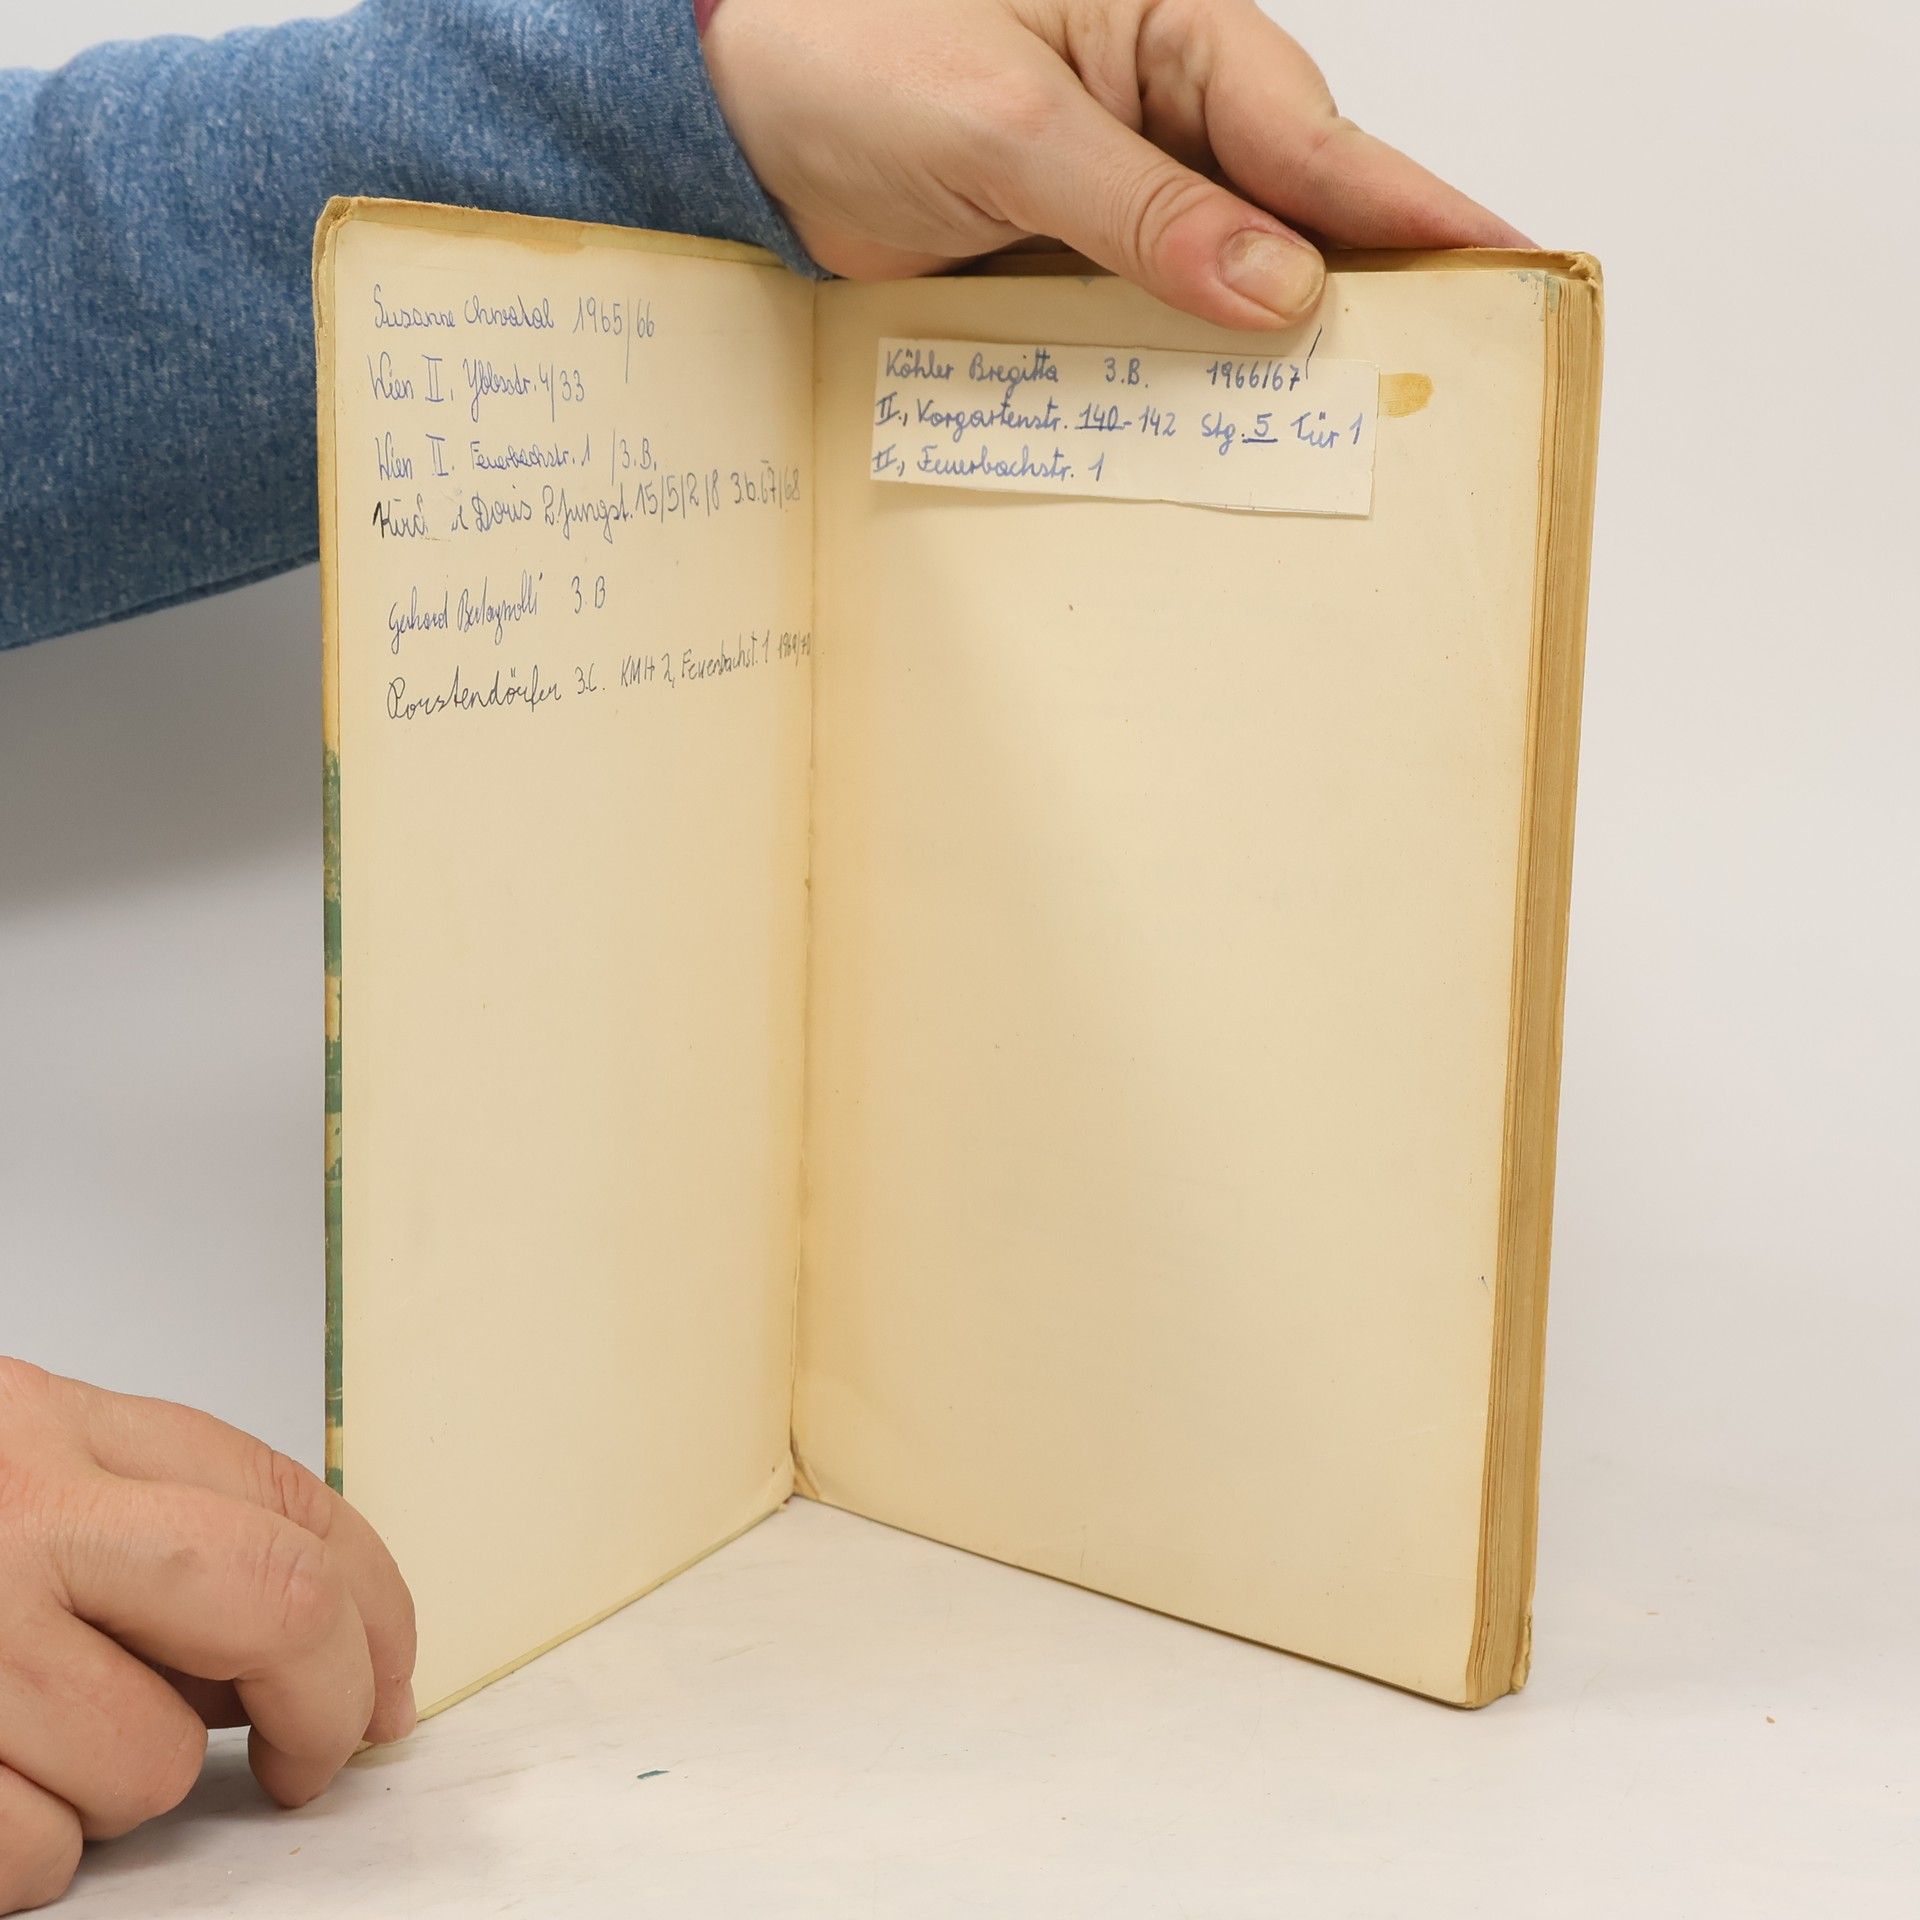 Susanne Chwatal 1965/66
Wien II, Ybbsstr. 4/33
Wien II. Feuerbachstr. 1 /3.B.
Doris 2. Jungst. 15/5/2/8 3b. 67/68
Gerhard 3.B
Porstendörfer 3.C. KMH 2, Feuerbachst. 1 1969/70
Köhler Bregitta 3.B. 1966/67
II., Vorgartenstr. 140-142 Stg. 5 Tür 1
II., Feuerbachstr. 1